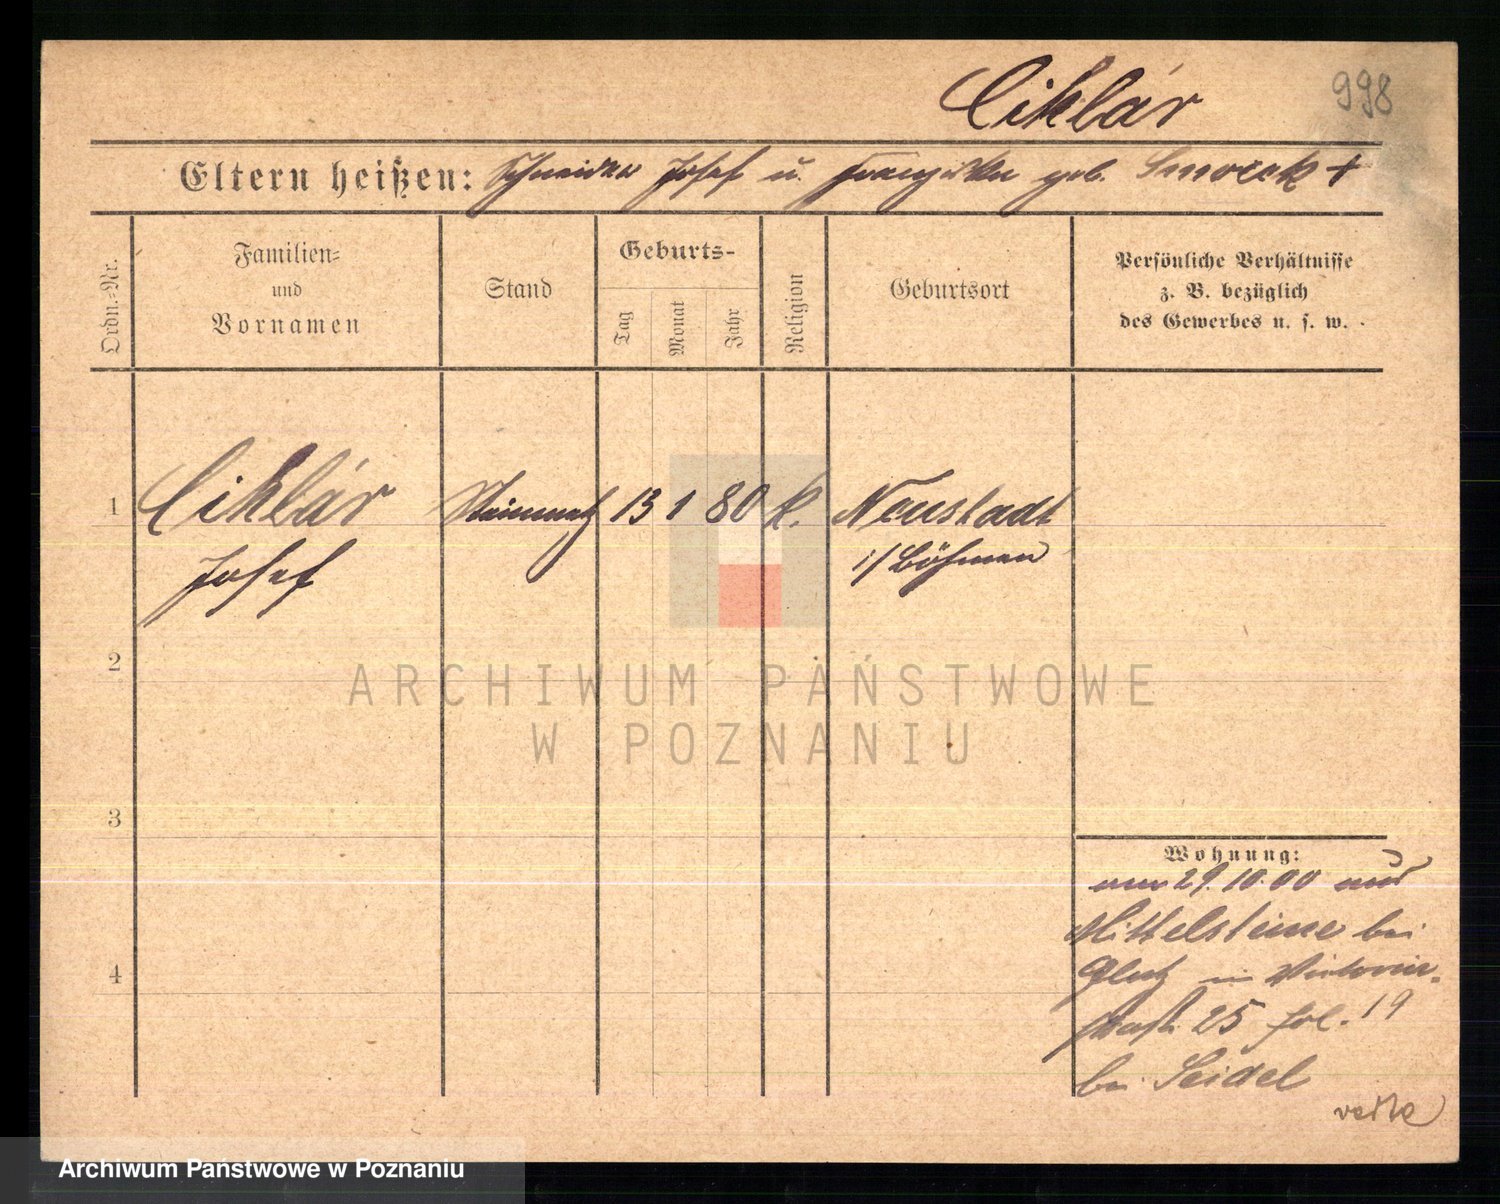 Ciklár
998
Eltern heißen: Schneider Josef u. Franziska geb. Smorcek +
Ordn.-Nr.
Familien-
und
Vornamen
Stand
Geburts-
Tag
Monat
Jahr
Religion
Geburtsort
Persönliche Verhältnisse
z. B. bezüglich
des Gewerbes u. s. w.
1 Ciklár Steinmetz 13 1 80 k. Neustadt
Josef i/Böhmen
2
3
4
Wohnung:
am 29.10.00 aus
Mittelsteine bei
Glatz in Victoria-
straße 25 fol. 19
bei Seidel
ARCHIWUM PAŃSTWOWE
W POZNANIU
Archiwum Państwowe w Poznaniu